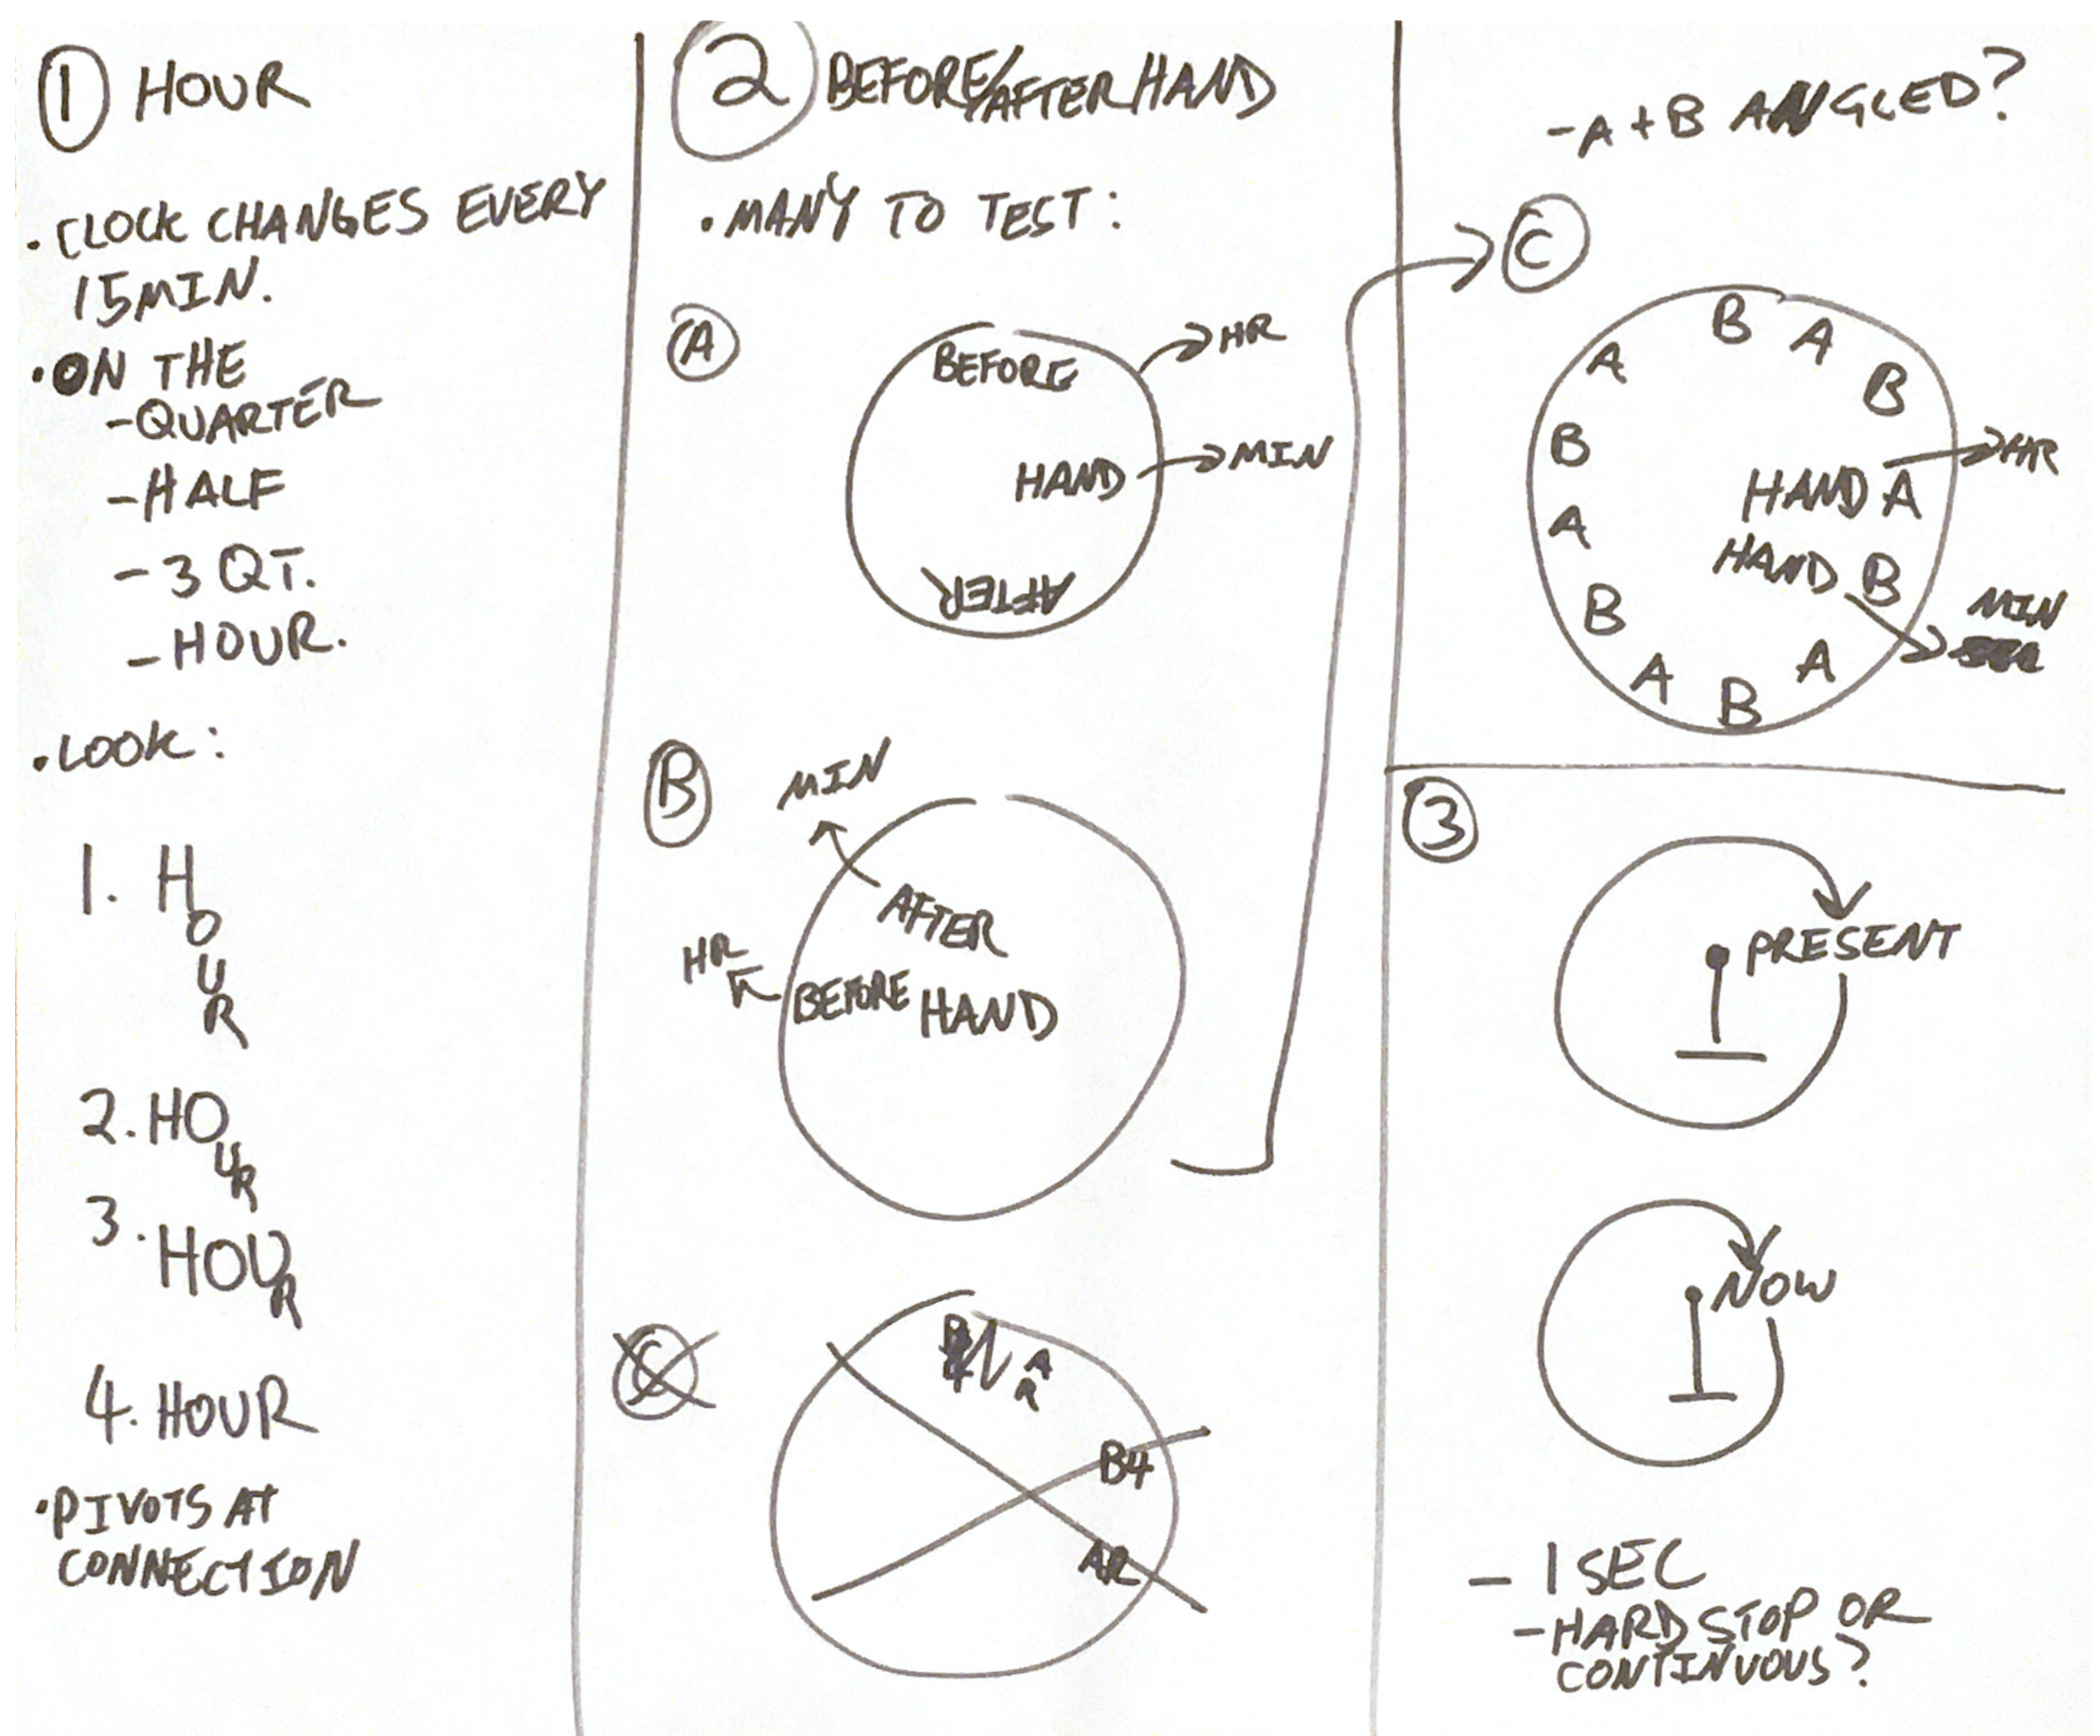 1 HOUR
• CLOCK CHANGES EVERY
15MIN.
• ON THE
- QUARTER
- HALF
- 3 QT.
- HOUR.
• LOOK:
1. H
O
U
R
2. HO
U
R
3. HOU
R
4. HOUR
• PIVOTS AT
CONNECTION
2 BEFORE/AFTER HAND
• MANY TO TEST:
A
BEFORE
HR
HAND
MIN
AFTER
B
MIN
AFTER
HR
BEFORE HAND
C
A
R
B4
AR
- A + B ANGLED?
C
B
A
B
HAND A
HR
HAND B
MIN
A
B
A
B
A
B
A
3
PRESENT
NOW
- 1 SEC
- HARD STOP OR
CONTINUOUS?